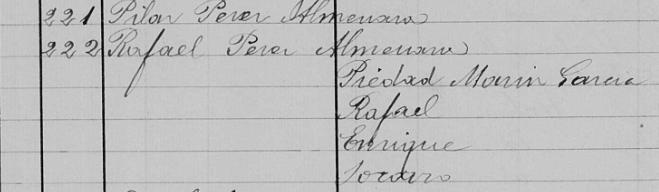 221 Pilar Perez Almenara
222 Rafael Perez Almenara
Piedad Marin Garcia
Rafael
Enrique
Socorro